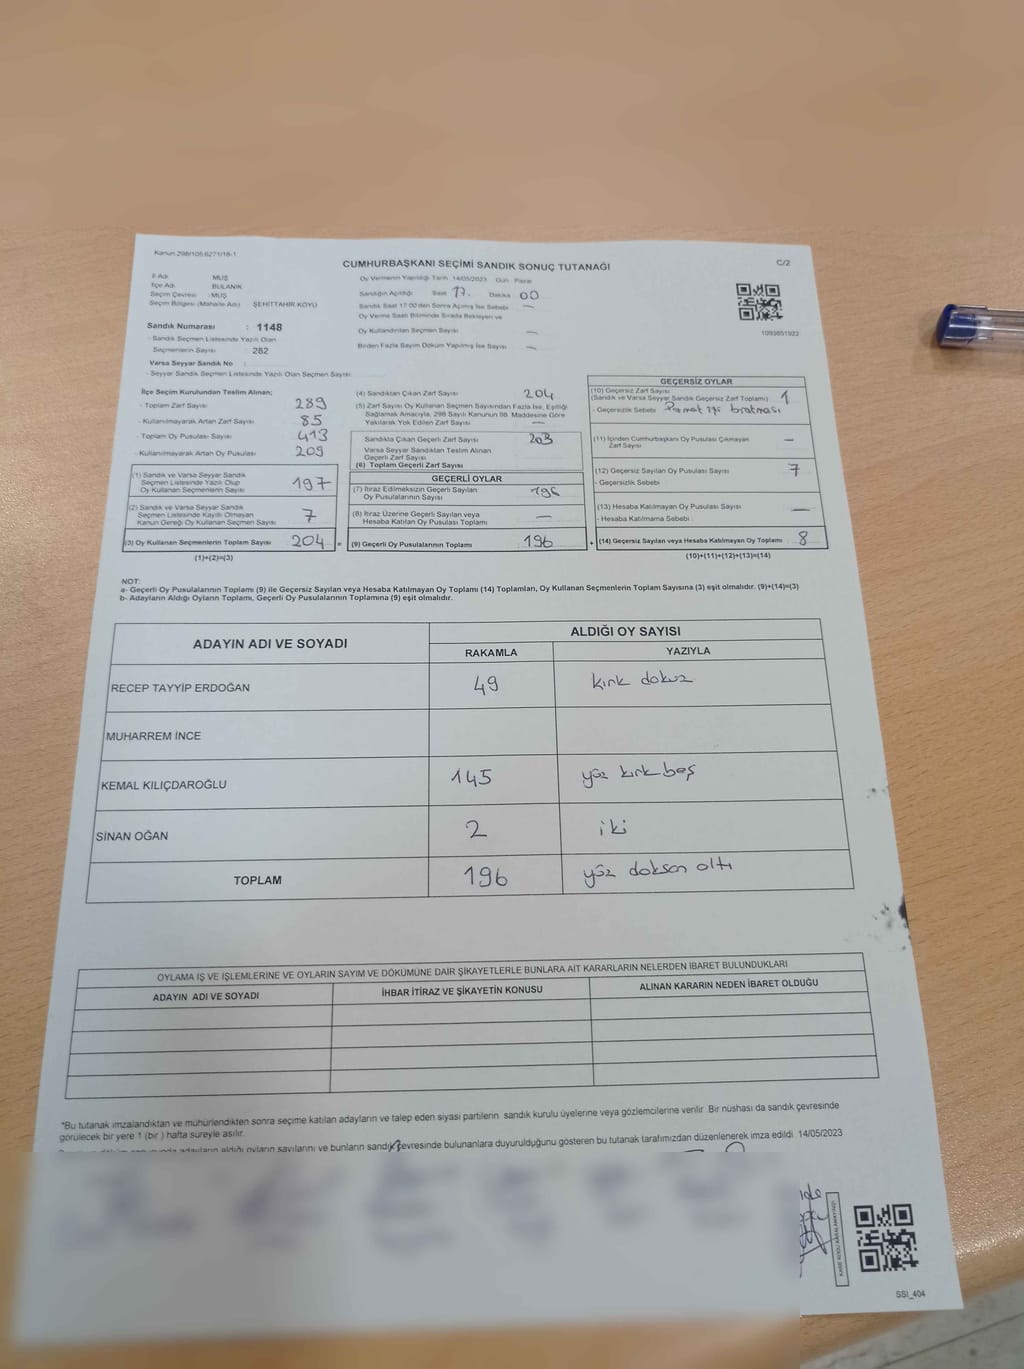 Kanun:298/105 6271/18-1
CUMHURBAŞKANI SEÇİMİ SANDIK SONUÇ TUTANAĞI
C/2
İl Adı : MUŞ
İlçe Adı : BULANIK
Seçim Çevresi : MUŞ
Seçim Bölgesi (Mahalle Adı) : ŞEHİTTAHİR KÖYÜ
Oy Vermenin Yapıldığı Tarih 14/05/2023 Gün Pazar
Sandığın Açıldığı Saat 17. Dakika 00
Sandık Saat 17:00'den Sonra Açılmış İse Sebebi —
Oy Verme Saati Bitiminde Sırada Bekleyen ve
Oy Kullandırılan Seçmen Sayısı —
Birden Fazla Sayım Döküm Yapılmış İse Sayısı —
1093851922
Sandık Numarası : 1148
- Sandık Seçmen Listesinde Yazılı Olan
Seçmenlerin Sayısı : 282
Varsa Seyyar Sandık No :
- Seyyar Sandık Seçmen Listesinde Yazılı Olan Seçmen Sayısı
İlçe Seçim Kurulundan Teslim Alınan;
- Toplam Zarf Sayısı 289
- Kullanılmayarak Artan Zarf Sayısı 85
- Toplam Oy Pusulası Sayısı 413
- Kullanılmayarak Artan Oy Pusulası 209
(1) Sandık ve Varsa Seyyar Sandık
Seçmen Listesinde Yazılı Olup
Oy Kullanan Seçmenlerin Sayısı 197
(2) Sandık ve Varsa Seyyar Sandık
Seçmen Listesinde Kayıtlı Olmayan
Kanun Gereği Oy Kullanan Seçmen Sayısı 7
(3) Oy Kullanan Seçmenlerin Toplam Sayısı 204
(1)+(2)=(3)
(4) Sandıktan Çıkan Zarf Sayısı 204
(5) Zarf Sayısı Oy Kullanan Seçmen Sayısından Fazla İse, Eşitliği
Sağlamak Amacıyla, 298 Sayılı Kanunun 98. Maddesine Göre
Yakılarak Yok Edilen Zarf Sayısı —
Sandıkta Çıkan Geçerli Zarf Sayısı 203
Varsa Seyyar Sandıktan Teslim Alınan
Geçerli Zarf Sayısı
(6) Toplam Geçerli Zarf Sayısı
GEÇERLİ OYLAR
(7) İtiraz Edilmeksizin Geçerli Sayılan
Oy Pusulalarının Sayısı 196
(8) İtiraz Üzerine Geçerli Sayılan veya
Hesaba Katılan Oy Pusulası Toplamı —
= (9) Geçerli Oy Pusulalarının Toplamı 196
GEÇERSİZ OYLAR
(10) Geçersiz Zarf Sayısı
(Sandık ve Varsa Seyyar Sandık Geçersiz Zarf Toplamı) 1
- Geçersizlik Sebebi
(11) İçinden Cumhurbaşkanı Oy Pusulası Çıkmayan
Zarf Sayısı —
(12) Geçersiz Sayılan Oy Pusulası Sayısı 7
- Geçersizlik Sebebi
(13) Hesaba Katılmayan Oy Pusulası Sayısı —
- Hesaba Katılmama Sebebi :
+ (14) Geçersiz Sayılan veya Hesaba Katılmayan Oy Toplamı 8
(10)+(11)+(12)+(13)=(14)
NOT:
a- Geçerli Oy Pusulalarının Toplamı (9) ile Geçersiz Sayılan veya Hesaba Katılmayan Oy Toplamı (14) Toplamları, Oy Kullanan Seçmenlerin Toplam Sayısına (3) eşit olmalıdır. (9)+(14)=(3)
b- Adayların Aldığı Oyların Toplamı, Geçerli Oy Pusulalarının Toplamına (9) eşit olmalıdır.
ADAYIN ADI VE SOYADI
ALDIĞI OY SAYISI
RAKAMLA YAZIYLA
RECEP TAYYİP ERDOĞAN 49 kırk dokuz
MUHARREM İNCE
KEMAL KILIÇDAROĞLU 145 yüz kırk beş
SİNAN OĞAN 2 iki
TOPLAM 196 yüz doksan altı
OYLAMA İŞ VE İŞLEMLERİNE VE OYLARIN SAYIM VE DÖKÜMÜNE DAİR ŞİKAYETLERLE BUNLARA AİT KARARLARIN NELERDEN İBARET BULUNDUKLARI
ADAYIN ADI VE SOYADI İHBAR İTİRAZ VE ŞİKAYETİN KONUSU ALINAN KARARIN NEDEN İBARET OLDUĞU
*Bu tutanak imzalandıktan ve mühürlendikten sonra seçime katılan adayların ve talep eden siyasi partilerin sandık kurulu üyelerine veya gözlemcilerine verilir. Bir nüshası da sandık çevresinde
görülecek bir yere 1 (bir ) hafta süreyle asılır.
adayların aldığı oyların sayılarını ve bunların sandık çevresinde bulunanlara duyurulduğunu gösteren bu tutanak tarafımızdan düzenlenerek imza edildi. 14/05/2023
KARE KODU KARALAMAYINIZ!
SSI_404